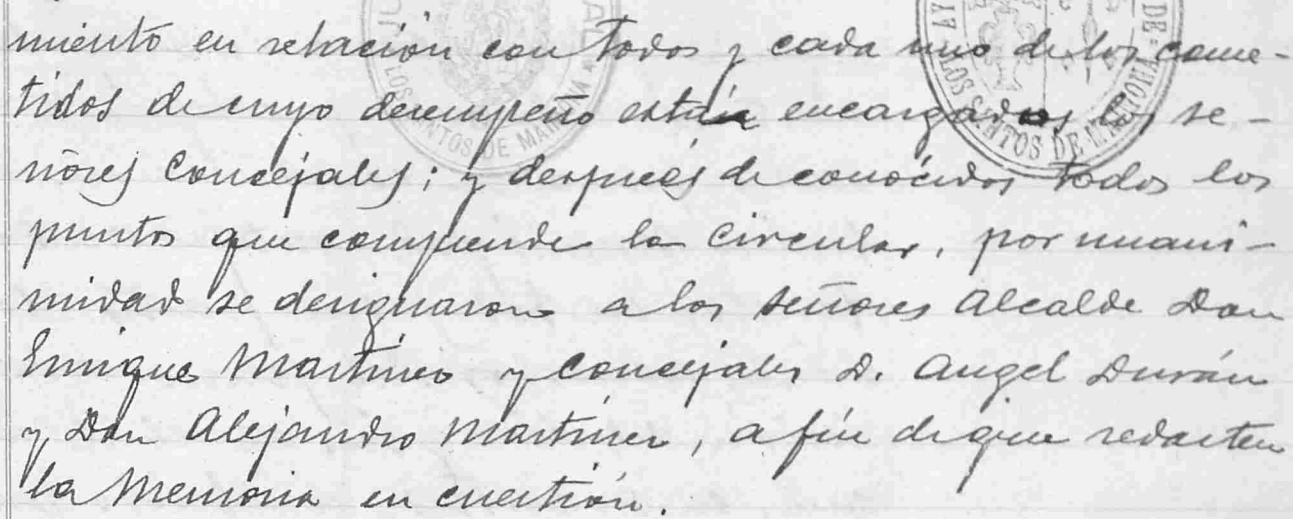 miento en relación con todos y cada uno de los come-
tidos de cuyo desempeño están encargados los se-
ñores Concejales; y después de conocidos todos los
puntos que comprende la Circular, por unani-
midad se designaron a los señores Alcalde Don
Enrique Martínez y Concejales D. Angel Durán
y Don Alejandro Martínez, a fin de que redacten
la Memoria en cuestión.
LOS SANTOS DE MAIMONA
AY
DE
LOS SANTOS DE MAIMONA